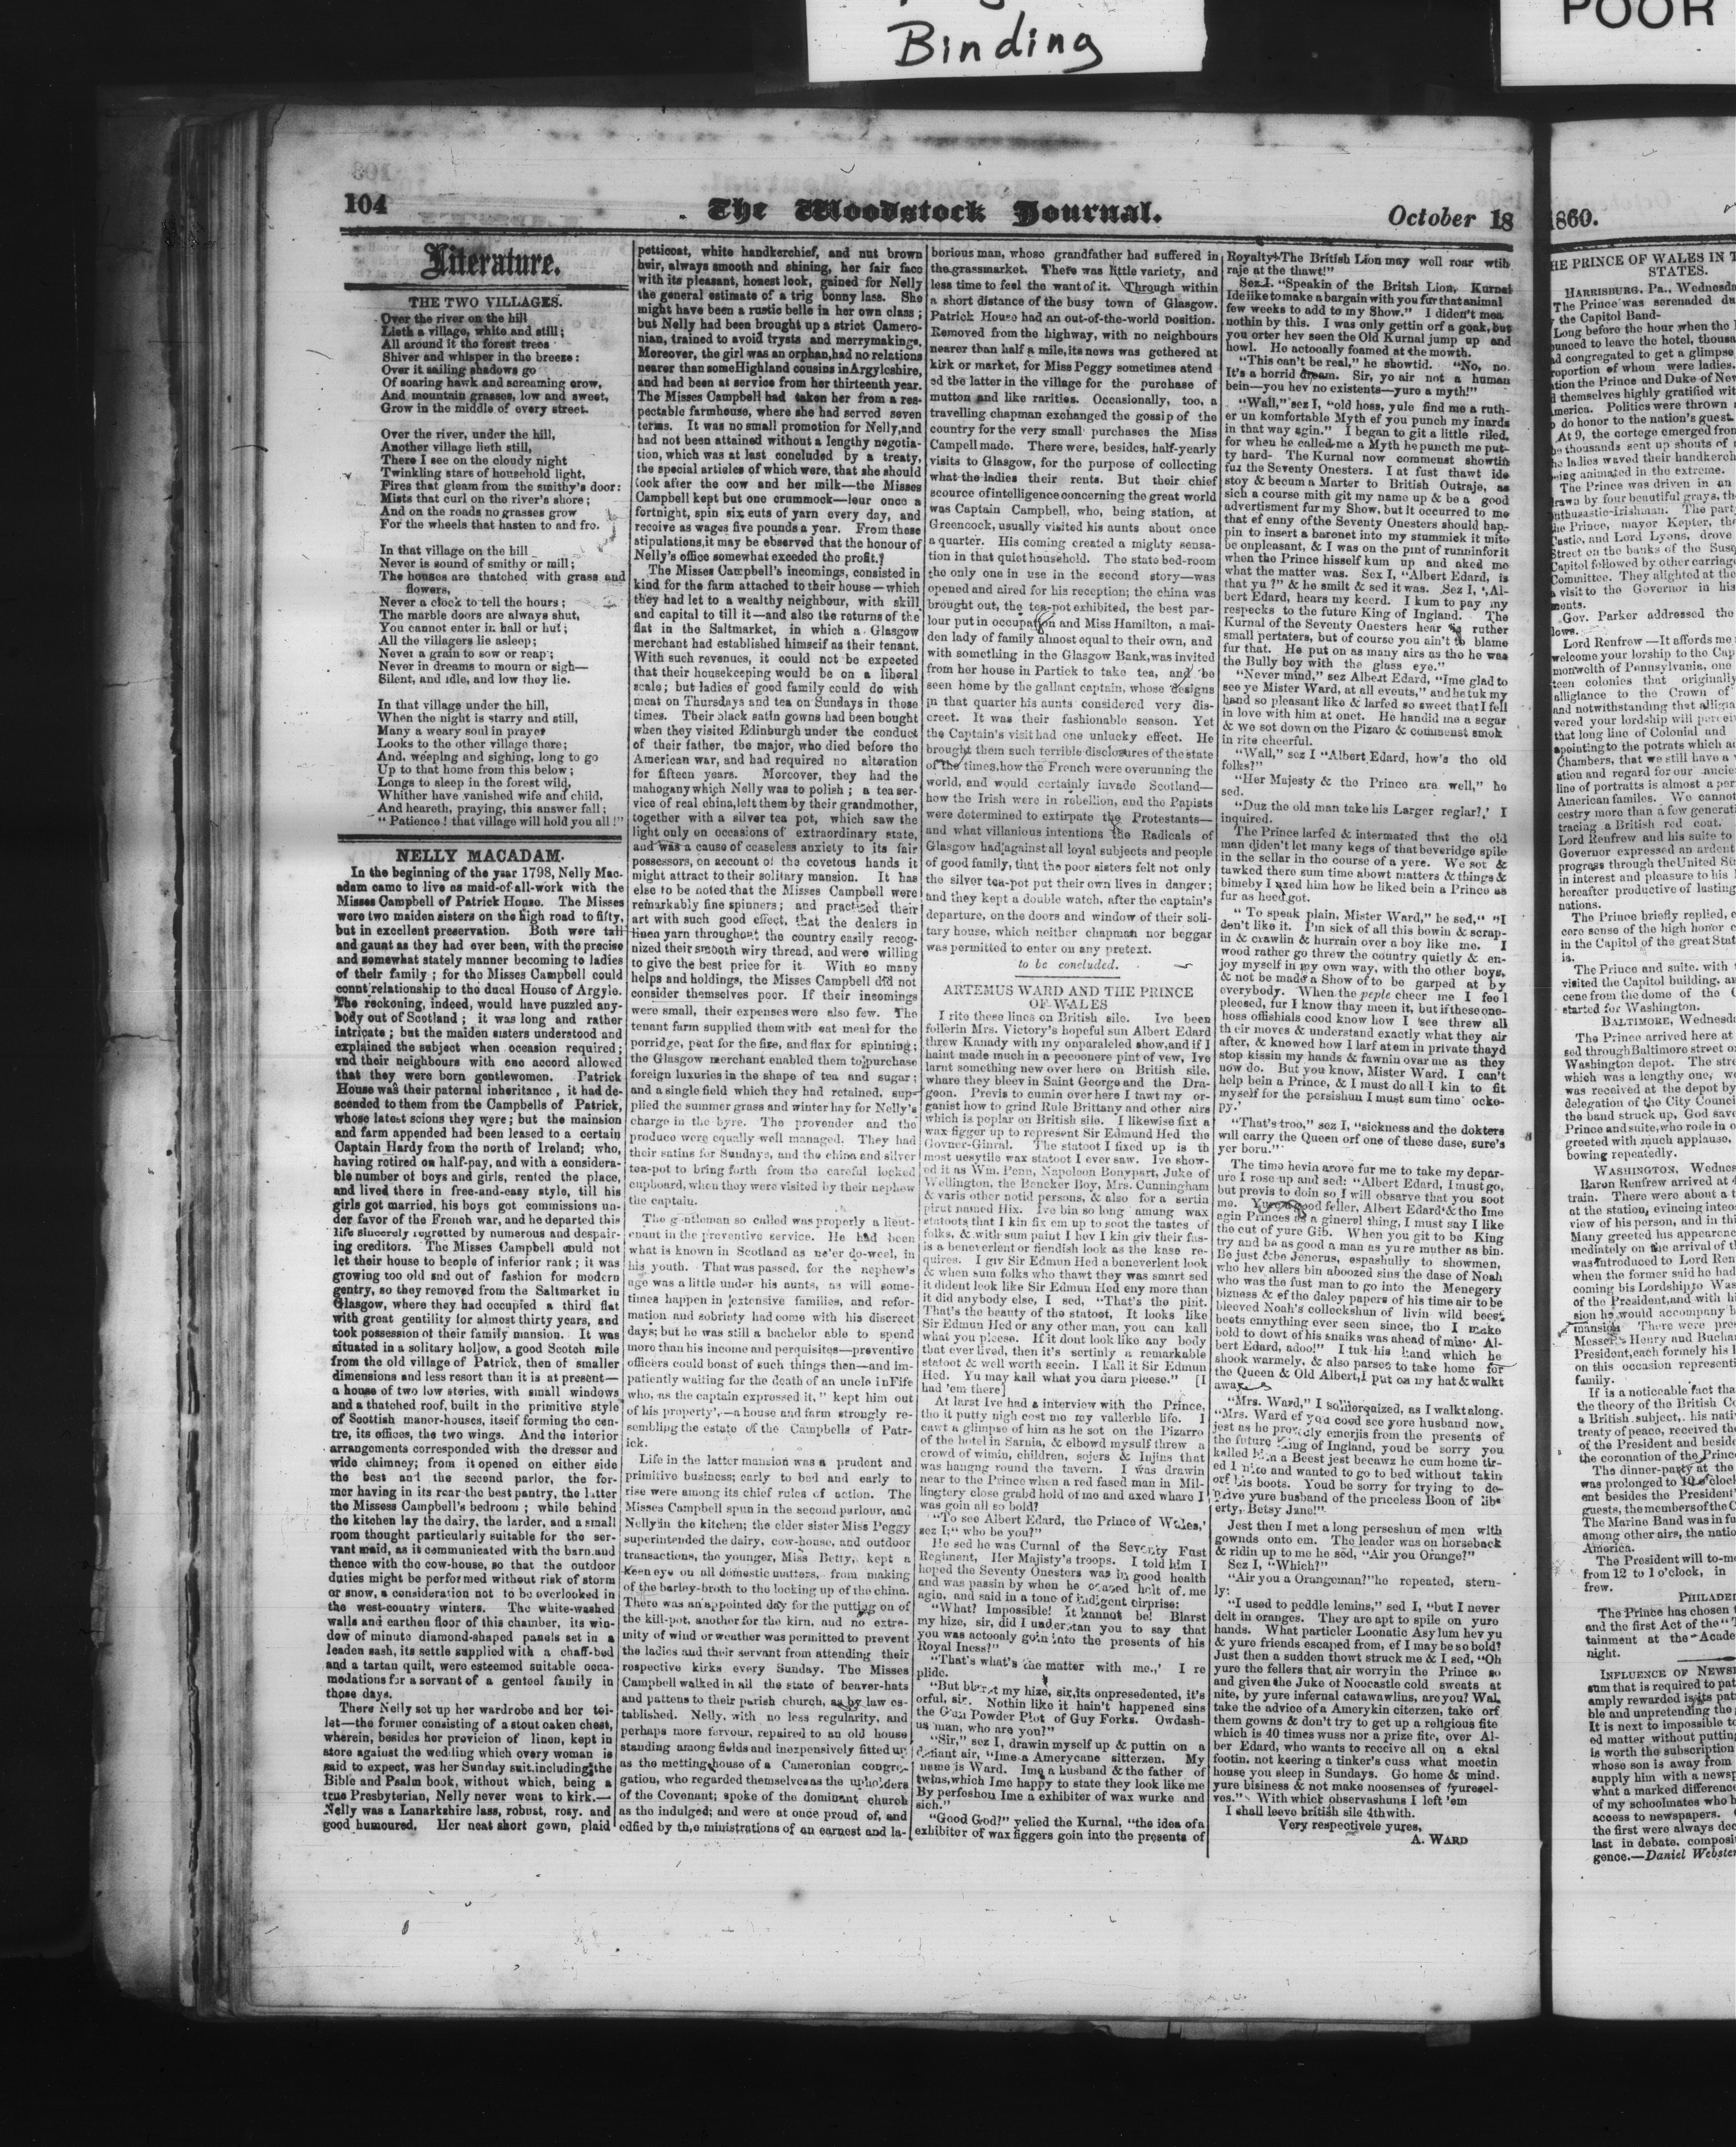 Binding
POOR
104
The Woodstock Journal.
October 18
Literature.
THE TWO VILLAGES.
Over the river on the hill
Lieth a village, white and still;
All around it the forest trees
Shiver and whisper in the breeze:
Over it sailing shadows go
Of soaring hawk and screaming crow,
And mountain grasses, low and sweet,
Grow in the middle of every street.
Over the river, under the hill,
Another village lieth still,
There I see on the cloudy night
Twinkling stars of household light,
Fires that gleam from the smithy's door:
Mists that curl on the river's shore;
And on the roads no grasses grow
For the wheels that hasten to and fro.
In that village on the hill
Never is sound of smithy or mill;
The houses are thatched with grass and
flowers,
Never a clock to tell the hours;
The marble doors are always shut,
You cannot enter in hall or hut;
All the villagers lie asleep;
Never a grain to sow or reap;
Never in dreams to mourn or sigh—
Silent, and idle, and low they lie.
In that village under the hill,
When the night is starry and still,
Many a weary soul in prayer
Looks to the other village there;
And, weeping and sighing, long to go
Up to that home from this below;
Longs to sleep in the forest wild,
Whither have vanished wife and child,
And heareth, praying, this answer fall;
"Patience! that village will hold you all!"
NELLY MACADAM.
In the beginning of the year 1798, Nelly Mac-
adam came to live as maid-of-all-work with the
Misses Campbell of Patrick House. The Misses
were two maiden sisters on the high road to fifty,
but in excellent preservation. Both were tall
and gaunt as they had ever been, with the precise
and somewhat stately manner becoming to ladies
of their family; for the Misses Campbell could
count relationship to the ducal House of Argyle.
The reckoning, indeed, would have puzzled any-
body out of Scotland; it was long and rather
intricate; but the maiden sisters understood and
explained the subject when occasion required;
and their neighbours with one accord allowed
that they were born gentlewomen. Patrick
House was their paternal inheritance, it had de-
scended to them from the Campbells of Patrick,
whose latest scions they were; but the mainsion
and farm appended had been leased to a certain
Captain Hardy from the north of Ireland; who,
having retired on half-pay, and with a considera-
ble number of boys and girls, rented the place,
and lived there in free-and-easy style, till his
girls got married, his boys got commissions un-
der favor of the French war, and he departed this
life sincerely regretted by numerous and despair-
ing creditors. The Misses Campbell could not
let their house to people of inferior rank; it was
growing too old and out of fashion for modern
gentry, so they removed from the Saltmarket in
Glasgow, where they had occupied a third flat
with great gentility for almost thirty years, and
took possession of their family mansion. It was
situated in a solitary hollow, a good Scotch mile
from the old village of Patrick, then of smaller
dimensions and less resort than it is at present—
a house of two low stories, with small windows
and a thatched roof, built in the primitive style
of Scottish manor-houses, itself forming the cen-
tre, its offices, the two wings. And the interior
arrangements corresponded with the dresser and
wide chimney; from it opened on either side
the best and the second parlor, the for-
mer having in its rear the best pantry, the latter
the Missess Campbell's bedroom; while behind
the kitchen lay the dairy, the larder, and a small
room thought particularly suitable for the ser-
vant maid, as it communicated with the barn and
thence with the cow-house, so that the outdoor
duties might be performed without risk of storm
or snow, a consideration not to be overlooked in
the west-country winters. The white-washed
walls and earthen floor of this chamber, its win-
dow of minute diamond-shaped panels set in a
leaden sash, its settle supplied with a chaff-bed
and a tartan quilt, were esteemed suitable occa-
modations for a servant of a genteel family in
those days.
There Nelly set up her wardrobe and her toi-
let—the former consisting of a stout oaken chest,
wherein, besides her provision of linen, kept in
store against the wedding which every woman is
said to expect, was her Sunday suit, including the
Bible and Psalm book, without which, being a
true Presbyterian, Nelly never went to kirk.—
Nelly was a Lanarkshire lass, robust, rosy, and
good humoured. Her neat short gown, plaid
petticoat, white handkerchief, and nut brown
hair, always smooth and shining, her fair face
with its pleasant, honest look, gained for Nelly
the general estimate of a trig bonny lass. She
might have been a rustic belle in her own class;
but Nelly had been brought up a strict Camero-
nian, trained to avoid trysts and merrymakings.
Moreover, the girl was an orphan, had no relations
nearer than some Highland cousins in Argyleshire,
and had been at service from her thirteenth year.
The Misses Campbell had taken her from a res-
pectable farmhouse, where she had served seven
terms. It was no small promotion for Nelly, and
had not been attained without a lengthy negotia-
tion, which was at last concluded by a treaty,
the special articles of which were, that she should
look after the cow and her milk—the Misses
Campbell kept but one crummock—lear once a
fortnight, spin six cuts of yarn every day, and
receive as wages five pounds a year. From these
stipulations, it may be observed that the honour of
Nelly's office somewhat exceeded the profit.
The Misses Campbell's incomings, consisted in
kind for the farm attached to their house—which
they had let to a wealthy neighbour, with skill
and capital to till it—and also the returns of the
flat in the Saltmarket, in which a Glasgow
merchant had established himself as their tenant.
With such revenues, it could not be expected
that their housekeeping would be on a liberal
scale; but ladies of good family could do with
meat on Thursdays and tea on Sundays in those
times. Their black satin gowns had been bought
when they visited Edinburgh under the conduct
of their father, the major, who died before the
American war, and had required no alteration
for fifteen years. Moreover, they had the
mahogany which Nelly was to polish; a tea ser-
vice of real china, left them by their grandmother,
together with a silver tea pot, which saw the
light only on occasions of extraordinary state,
and was a cause of ceaseless anxiety to its fair
possessors, on account of the covetous hands it
might attract to their solitary mansion. It has
else to be noted that the Misses Campbell were
remarkably fine spinners; and practised their
art with such good effect, that the dealers in
linen yarn throughout the country easily recog-
nized their smooth wiry thread, and were willing
to give the best price for it. With so many
helps and holdings, the Misses Campbell did not
consider themselves poor. If their incomings
were small, their expenses were also few. The
tenant farm supplied them with eat meal for the
porridge, peat for the fire, and flax for spinning;
the Glasgow merchant enabled them to purchase
foreign luxuries in the shape of tea and sugar;
and a single field which they had retained, sup-
plied the summer grass and winter hay for Nelly's
charge in the byre. The provender and the
produce were equally well managed. They had
their satins for Sundays, and the china and silver
tea-pot to bring forth from the careful locked
cupboard, when they were visited by their nephew
the captain.
The gentleman so called was properly a lieut-
enant in the preventive service. He had been
what is known in Scotland as ne'er do-weel, in
his youth. That was passed, for the nephew's
age was a little under his aunts, as will some-
times happen in extensive families, and refor-
mation and sobriety had come with his discreet
days; but he was still a bachelor able to spend
more than his income and perquisites—preventive
officers could boast of such things then—and im-
patiently waiting for the death of an uncle in Fife
who, as the captain expressed it, "kept him out
of his property',—a house and farm strongly re-
sembling the estate of the Campbells of Patr-
ick.
Life in the latter mansion was a prudent and
primitive business; early to bed and early to
rise were among its chief rules of action. The
Misses Campbell spun in the second parlour, and
Nelly in the kitchen; the elder sister Miss Peggy
superintended the dairy, cow-house, and outdoor
transactions, the younger, Miss Betty, kept a
keen eye on all domestic matters, from making
of the barley-broth to the locking up of the china.
There was an appointed day for the putting on of
the kill-pot, another for the kirn, and no extre-
mity of wind or weather was permitted to prevent
the ladies and their servant from attending their
respective kirks every Sunday. The Misses
Campbell walked in all the state of beaver-hats
and pattens to their parish church, as by law es-
tablished. Nelly, with no less regularity, and
perhaps more fervour, repaired to an old house
standing among fields and inexpensively fitted up
as the metting house of a Cameronian congre-
gation, who regarded themselves as the upholders
of the Covenant; spoke of the dominant church
as the indulged; and were at once proud of, and
edfied by the ministrations of an earnest and la-
borious man, whose grandfather had suffered in
the grassmarket. There was little variety, and
less time to feel the want of it. Through within
a short distance of the busy town of Glasgow.
Patrick House had an out-of-the-world position.
Removed from the highway, with no neighbours
nearer than half a mile, its news was gothered at
kirk or market, for Miss Peggy sometimes atend
ed the latter in the village for the purchase of
mutton and like rarities. Occasionally, too, a
travelling chapman exchanged the gossip of the
country for the very small purchases the Miss
Campell made. There were, besides, half-yearly
visits to Glasgow, for the purpose of collecting
what the ladies their rents. But their chief
scource of intelligence concerning the great world
was Captain Campbell, who, being station, at
Greencock, usually visited his aunts about once
a quarter. His coming created a mighty sensa-
tion in that quiet household. The state bed-room
the only one in use in the second story—was
opened and aired for his reception; the china was
brought out, the tea-pot exhibited, the best par-
lour put in occupation and Miss Hamilton, a mai-
den lady of family almost equal to their own, and
with something in the Glasgow Bank, was invited
from her house in Partick to take tea, and be
seen home by the gallant captain, whose designs
in that quarter his aunts considered very dis-
creet. It was their fashionable season. Yet
the Captain's visit had one unlucky effect. He
brought them such terrible disclosures of the state
of the times, how the French were overunning the
world, and would certainly invade Scotland—
how the Irish were in rebellion, and the Papists
were determined to extirpate the Protestants—
and what villanious intentions the Radicals of
Glasgow had against all loyal subjects and people
of good family, that the poor sisters felt not only
the silver tea-pot put their own lives in danger;
and they kept a double watch, after the captain's
departure, on the doors and window of their soli-
tary house, which neither chapman nor beggar
was permitted to enter on any pretext.
to be concluded.
ARTEMUS WARD AND THE PRINCE
OF WALES
I rite these lines on British sile. Ive been
follerin Mrs. Victory's hopeful sun Albert Edard
threw Kanady with my onparaleled show, and if I
haint made much in a pecoonere pint of vew, Ive
larnt something new over here on British sile.
whare they bleev in Saint George and the Dra-
goon. Previs to cumin over here I tawt my or-
ganist how to grind Rule Brittany and other airs
which is poplar on British sile. I likewise fixt a
wax figger up to represent Sir Edmund Hed the
Govner-Ginral. The statoot I fixed up is th
most uesytile wax statoot I ever saw. Ive show-
ed it as Wm. Penn, Napoleon Bonypart, Juke of
Wellington, the Beneker Boy, Mrs. Cunningham
& varis other notid persons, & also for a sertin
pirut named Hix. Ive bin so long amung wax
statoots that I kin fix em up to soot the tastes of
folks, & with sum paint I hev I kin giv their fas-
is a beneverlent or fiendish look as the kase re-
quires. I giv Sir Edmun Hed a beneverlent look
& when sum folks who thawt they was smart sed
it dident look like Sir Edmun Hed eny more than
it did anybody else, I sed, "That's the pint.
That's the beauty of the statoot. It looks like
Sir Edmun Hed or any other man, you can kall
what you pleese. If it dont look like any body
that ever lived, then it's sertinly a remarkable
statoot & well worth seein. I kall it Sir Edmun
Hed. Yu may kall what you darn pleese." [I
had 'em there]
At larst Ive had a interview with the Prince,
tho it putty nigh cost me my vallerble life. I
cawt a glimpse of him as he sot on the Pizarro
of the hotel in Sarnia, & elbowd mysulf threw a
crowd of wimin, children, sojers & Injins that
was hangng round the tavern. I was drawin
near to the Prince when a red fased man in Mil-
lingtery close grabd hold of me and axed whare I
was goin all so bold?
"To see Albert Edard, the Prince of Wales,'
sez I;" who be you?"
He sed he was Curnal of the Seventy Fust
Regiment, Her Majisty's troops. I told him I
hoped the Seventy Onesters was in good health
and was passin by when he ceased holt of me
agin, and said in a tone of indigent cirprise:
"What? Impossible! It kannot be! Blarst
my hize, sir, did I understan you to say that
you was actooaly goin into the presents of his
Royal Iness?"
"That's what's the matter with me.,' I re
plide.
"But blarst my hize, sir, its onpresedented, it's
orful, sir. Nothin like it hain't happened sins
the Gun Powder Plot of Guy Forks. Owdash-
us man, who are you?"
"Sir," sez I, drawin myself up & puttin on a
defiant air, "Ime a Amerycane sitterzen. My
name is Ward. Ime a husband & the father of
twins, which Ime happy to state they look like me
By perfeshon Ime a exhibiter of wax wurke and
sich."
"Good God!" yelied the Kurnal, "the idea of a
exhibiter of wax figgers goin into the presents of
Royalty! The British Lion may well roar wtih
raje at the thawt!"
Sez I. "Speakin of the Britsh Lion, Kurnal
Ide iike to make a bargain with you fur that animal
few weeks to add to my Show." I diden't mea
nothin by this. I was only gettin orf a goak, but
you orter hev seen the Old Kurnal jump up and
howl. He actooally foamed at the mowth.
"This can't be real," he showtid. "No, no.
It's a horrid dream. Sir, yo air not a human
bein—you hev no existents—yure a myth!"
"Wall," sez I, "old hoss, yule find me a ruth-
er un komfortable Myth ef you punch my inards
in that way agin." I began to git a little riled,
for when he called me a Myth he puncth me put-
ty hard. The Kurnal now commenst showtin
fur the Seventy Onesters. I at fust thawt ide
stoy & becum a Marter to British Outraje, as
sich a course mith git my name up & be a good
advertisment fur my Show, but it occurred to me
that ef enny of the Seventy Onesters should hap-
pin to insert a baronet into my stummick it mite
be onpleasant, & I was on the pint of runnin for it
when the Prince hisself kum up and aked me
what the matter was. Sex I, "Albert Edard, is
that yu?" & he smilt & sed it was. Sez I, ',Al-
bert Edard, hears my keerd. I kum to pay my
respecks to the future King of Ingland. The
Kurnal of the Seventy Onesters hear is ruther
small pertaters, but of course you ain't to blame
fur that. He put on as many airs as tho he was
the Bully boy with the glass eye."
"Never mind," sez Albert Edard, "Ime glad to
see ye Mister Ward, at all events," and he tuk my
hand so pleasant like & larfed so sweet that I fell
in love with him at onct. He handid me a segar
& we sot down on the Pizaro & commenst smok
in rite cheerful.
"Wall," sez I "Albert Edard, how's the old
folks?"
"Her Majesty & the Prince are well," he
sed.
"Duz the old man take his Larger reglar?,' I
inquired.
The Prince larfed & intermated that the old
man diden't let many kegs of that beveridge spile
in the sellar in the course of a yere. We sot &
tawked there sum time abowt matters & things &
bimeby I axed him how he liked bein a Prince as
fur as heed got.
"To speak plain, Mister Ward," he sed," "I
den't like it. I'm sick of all this bowin & scrap-
in & crawlin & hurrain over a boy like me. I
wood rather go threw the country quietly & en-
joy myself in my own way, with the other boys,
& not be made a Show of to be garped at by
everybody. When the peple cheer me I feel
pleesed, fur I know thay meen it, but if these one-
hoss offishials cood know how I see threw all
their moves & understan exactly what they air
after, & knowed how I larf at em in private thayd
stop kissin my hands & fawnin ovar me as they
now do. But you know, Mister Ward. I can't
help bein a Prince, & I must do all I kin to fit
myself for the persishun I must sum time ocke-
py.'
"That's troo," sez I, "sickness and the dokters
will carry the Queen orf one of these dase, sure's
yer born."
The time hevin arove fur me to take my depar-
ure I rose up and sed: "Albert Edard, I must go,
but previs to doin so I will obsarve that you soot
me. Yure a good feller, Albert Edard & tho Ime
agin Princes as a ginerel thing, I must say I like
the cut of yure Gib. When you git to be King
try and be as good a man as yure muther as bin.
Be just & be Jenerus, espashully to showmen,
who hev allers bin aboozed sins the dase of Noah
who was the fust man to go into the Menegery
bizness & ef the daley papers of his time air to be
bleeved Noah's colleckshun of livin wild beest
beets ennything ever seen since, tho I make
bold to dowt of his snaiks was ahead of mine. Al-
bert Edard, adoo!" I tuk his hand which he
shook warmely, & also parses to take home for
the Queen & Old Albert, I put on my hat & walkt
away.
"Mrs. Ward," I solilerquized, as I walkt along.
"Mrs. Ward ef you cood see yore husband now,
jest as he prowdly emerjis from the presents of
the future King of Ingland, youd be sorry you
kalled him a Beest jest becawz he cum home tir-
ed 1 nite and wanted to go to bed without takin
orf his boots. Youd be sorry for trying to de-
prive yure busband of the priceless Boon of libe
erty, Betsy Jane!"
Jest then I met a long perseshun of men with
gownds onto em. The leader was on horseback
& ridin up to me he sed, "Air you Orange?"
Sez I, "Which?"
"Air you a Orangeman?" he repeated, stern-
ly:
"I used to peddle lemins," sed I, "but I never
delt in oranges. They are apt to spile on yure
hands. What particler Loonatic Asylum hev yu
& yure friends escaped from, ef I may be so bold?
Just then a sudden thowt struck me & I sed, "Oh
yure the fellers that air worryin the Prince so
and given the Juke of Noocastle cold sweats at
nite, by yure infernal catawawlins, are you? Wal,
take the advice of a Amerykin citerzen, take orf
them gowns & don't try to get up a religious fite
which is 40 times wuss nor a prize fite, over Al-
ber Edard, who wants to receive all on a ekal
footin, not keering a tinker's cuss what meetin
house you sleep in Sundays. Go home & mind.
yure bisiness & not make noosenses of yuresel-
ves." With which observashuns I left 'em
I shall leeve british sile 4thwith.
Very respectivele yures,
A. WARD
1860.
HE PRINCE OF WALES IN T
STATES.
HARRISBURG, Pa., Wednesda
The Prince was serenaded du
the Capitol Band-
Long before the hour when the
ounced to leave the hotel, thousa
d congregated to get a glimpse
roportion of whom were ladies.
ation the Prince and Duke of New
d themselves highly gratified wit
merica. Politics were thrown
do honor to the nation's guest.
At 9, the cortege emerged from
thousands sent up shouts of
he ladies waved their handkerch
eing animated in the extreme.
The Prince was driven in an
rawn by four beautiful grays, th
nthusastic-Irishman. The party
he Prince, mayor Kepler, the
astic, and Lord Lyons, drove
Street on the banks of the Susq
Capitol followed by other carriage
Committee. They alighted at the
a visit to the Governor in his
ments.
Gov. Parker addressed the
lows.
Lord Renfrew—It affords me
welcome your lorship to the Cap
monwelth of Pennsylvania, one
teen colonies that originally
alligiance to the Crown of
and notwithstanding that alligia
vered your lordship will percei
that long line of Colonial and
apointing to the potrats which a
Chambers, that we still have a
ation and regard for our ancie
line of portratts is almost a per
American familes. We cannot
cestry more than a few generati
tracing a British red coat.
Lord Renfrew and his suite to
Governor expressed an ardent
progress through the United St
in interest and pleasure to his
hereafter productive of lasting
nations.
The Prince briefly replied, e
cere sense of the high honor c
in the Capitol of the great Stat
is.
The Prince and suite. with
visited the Capitol building, an
cene from the dome of the C
started for Washington.
BALTIMORE, Wednesd
The Prince arrived here at
sed through Baltimore street o
Washington depot. The stre
which was a lengthy one, we
was received at the depot by
delegation of the City Counci
the band struck up, God save
Prince and suite, who rode in o
greeted with much applause.
bowing repeatedly.
WASHINGTON, Wednes
Baron Renfrew arrived at 4
train. There were about a t
at the station, evincing inteo
view of his person, and in thi
Many greeted his appearenc
mediately on the arrival of t
was introduced to Lord Ren
when the former said he had
coming his Lordship to Was
of the President, and with h
sion he would accompany b
mansion There were pre
Messers. Henry and Buchan
President, each formely his
on this occasion representi
family.
If is a noticeable fact tha
the theory of the British Co
a British subject,. his nati
treaty of peace, received the
of the President and beside
the coronation of the Prince
The dinner-party at the
was prolonged to 10 o'clock
ent besides the President'
guests, the members of the C
The Marine Band was in fu
among other airs, the natio
America.
The President will to-mo
from 12 to 1 o'clock, in
frew.
PHILADEL
The Prince has chosen
and the first Act of the "T
tainment at the Acade
night.
INFLUENCE OF NEWSP
sum that is required to pat
amply rewarded is its pat
ble and unpretending the
It is next to impossible to
ed matter without putting
is worth the subscription
whose son is away from
supply him with a newsp
what a marked difference
of my schoolmates who h
access to newspapers.
the first were always dec
last in debate. composi
gence.—Daniel Webster